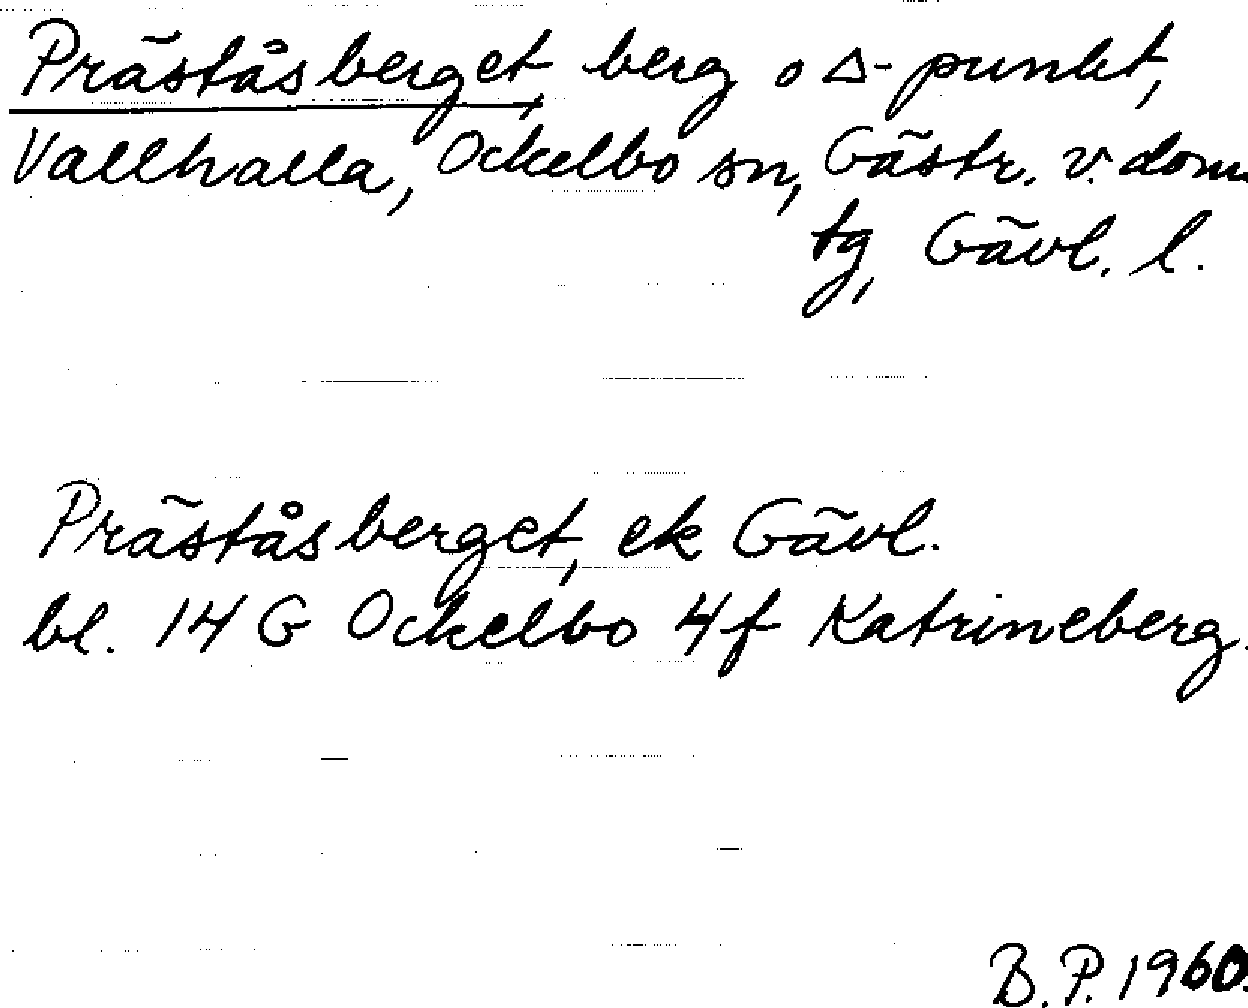 Präståsberget, berg o △-punkt,
Vallhalla, Ockelbo sn, Gästr. v. dom.
tg, Gävl. l.
Präståsberget, ek Gävl.
bl. 14 G Ockelbo 4f Katrineberg.
B.P. 1960.